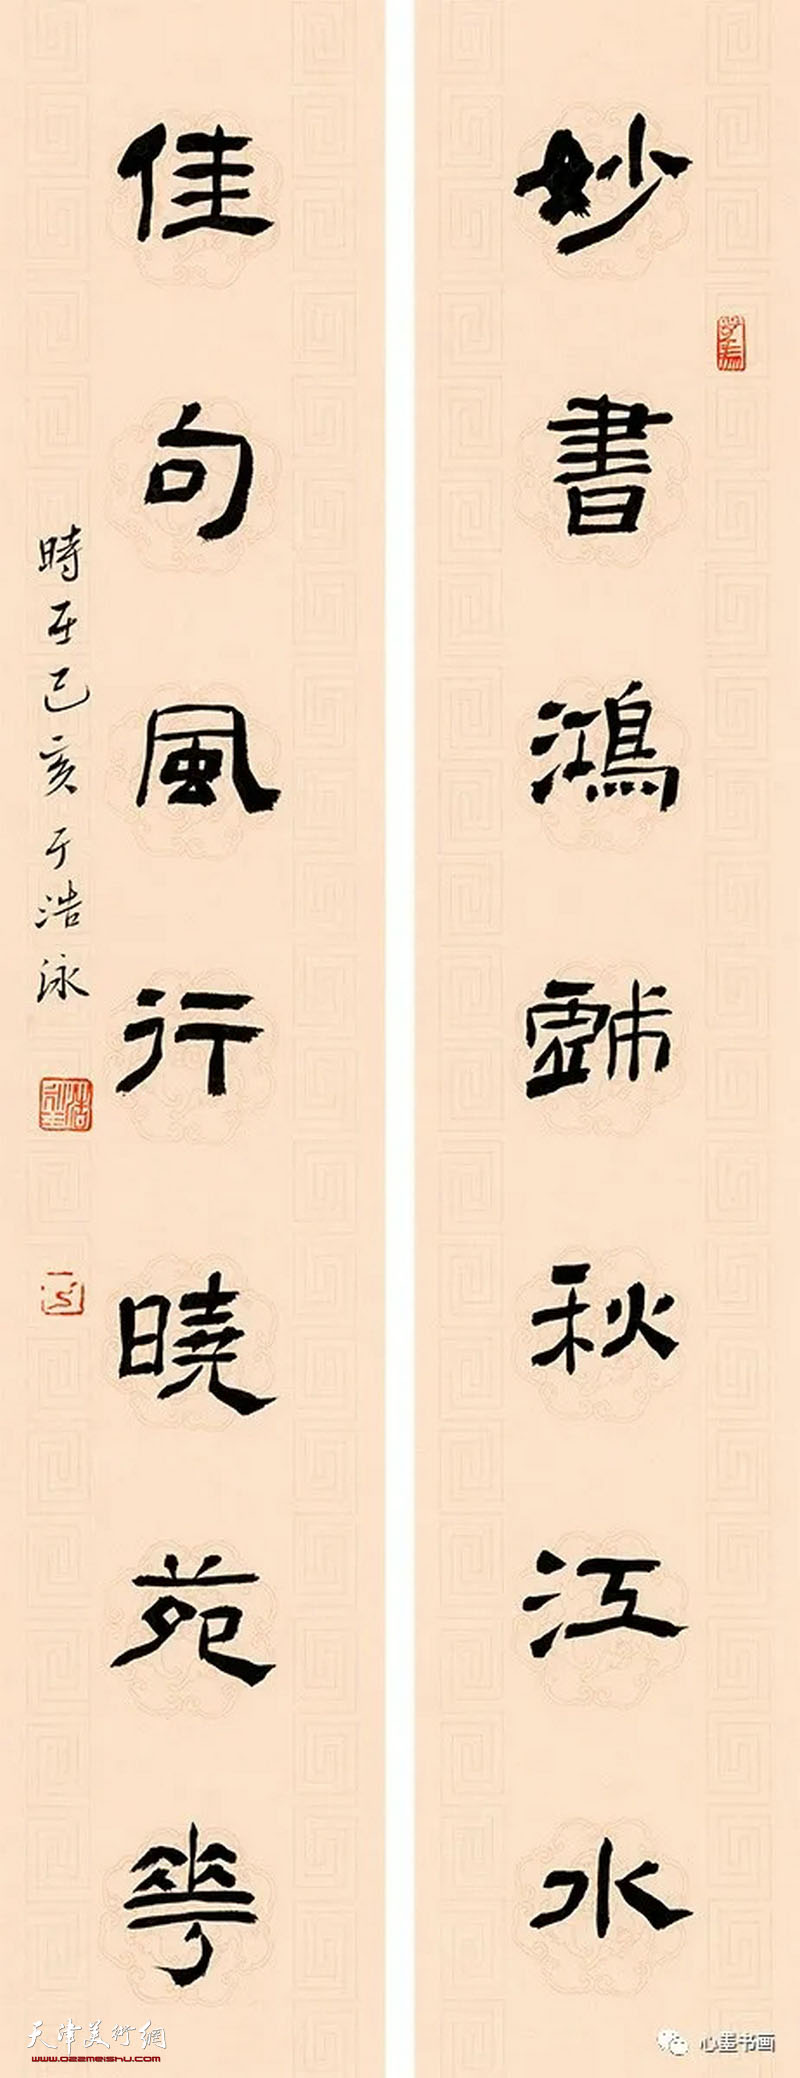 妙書鴻戲秋江水
佳句風行曉苑華
時在己亥于浩泳
天津美術網
www.022meishu.com
心墨书画